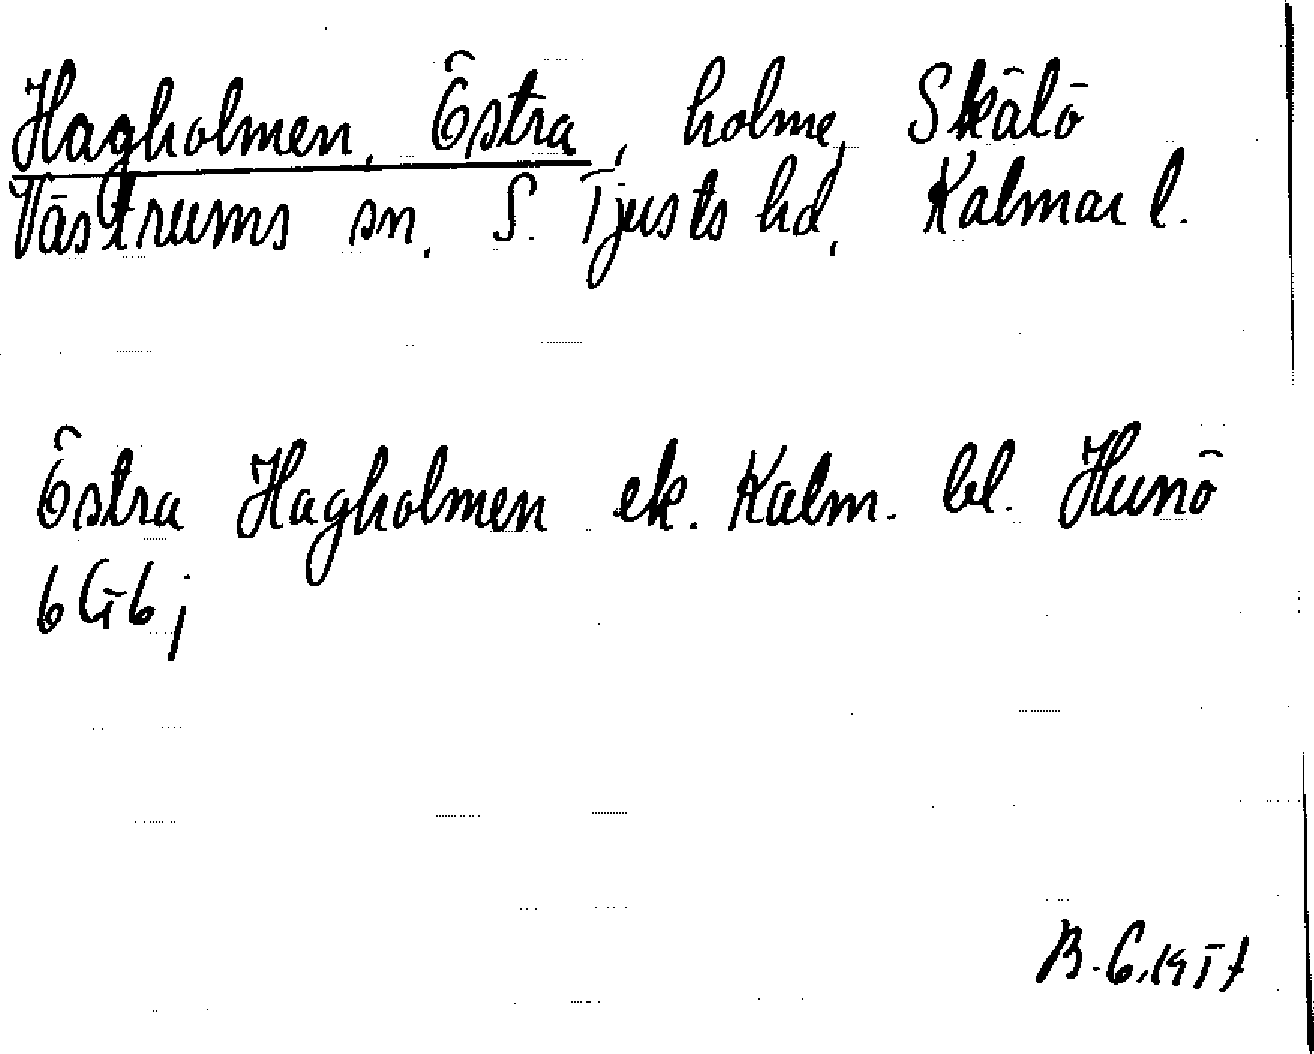 Hagholmen, Östra, holme, Skälö
Västrums sn, S. Tjusts hd, Kalmar l.
Östra Hagholmen ek. Kalm. bl. Hunö
6 G 6 j
B.G. 1957